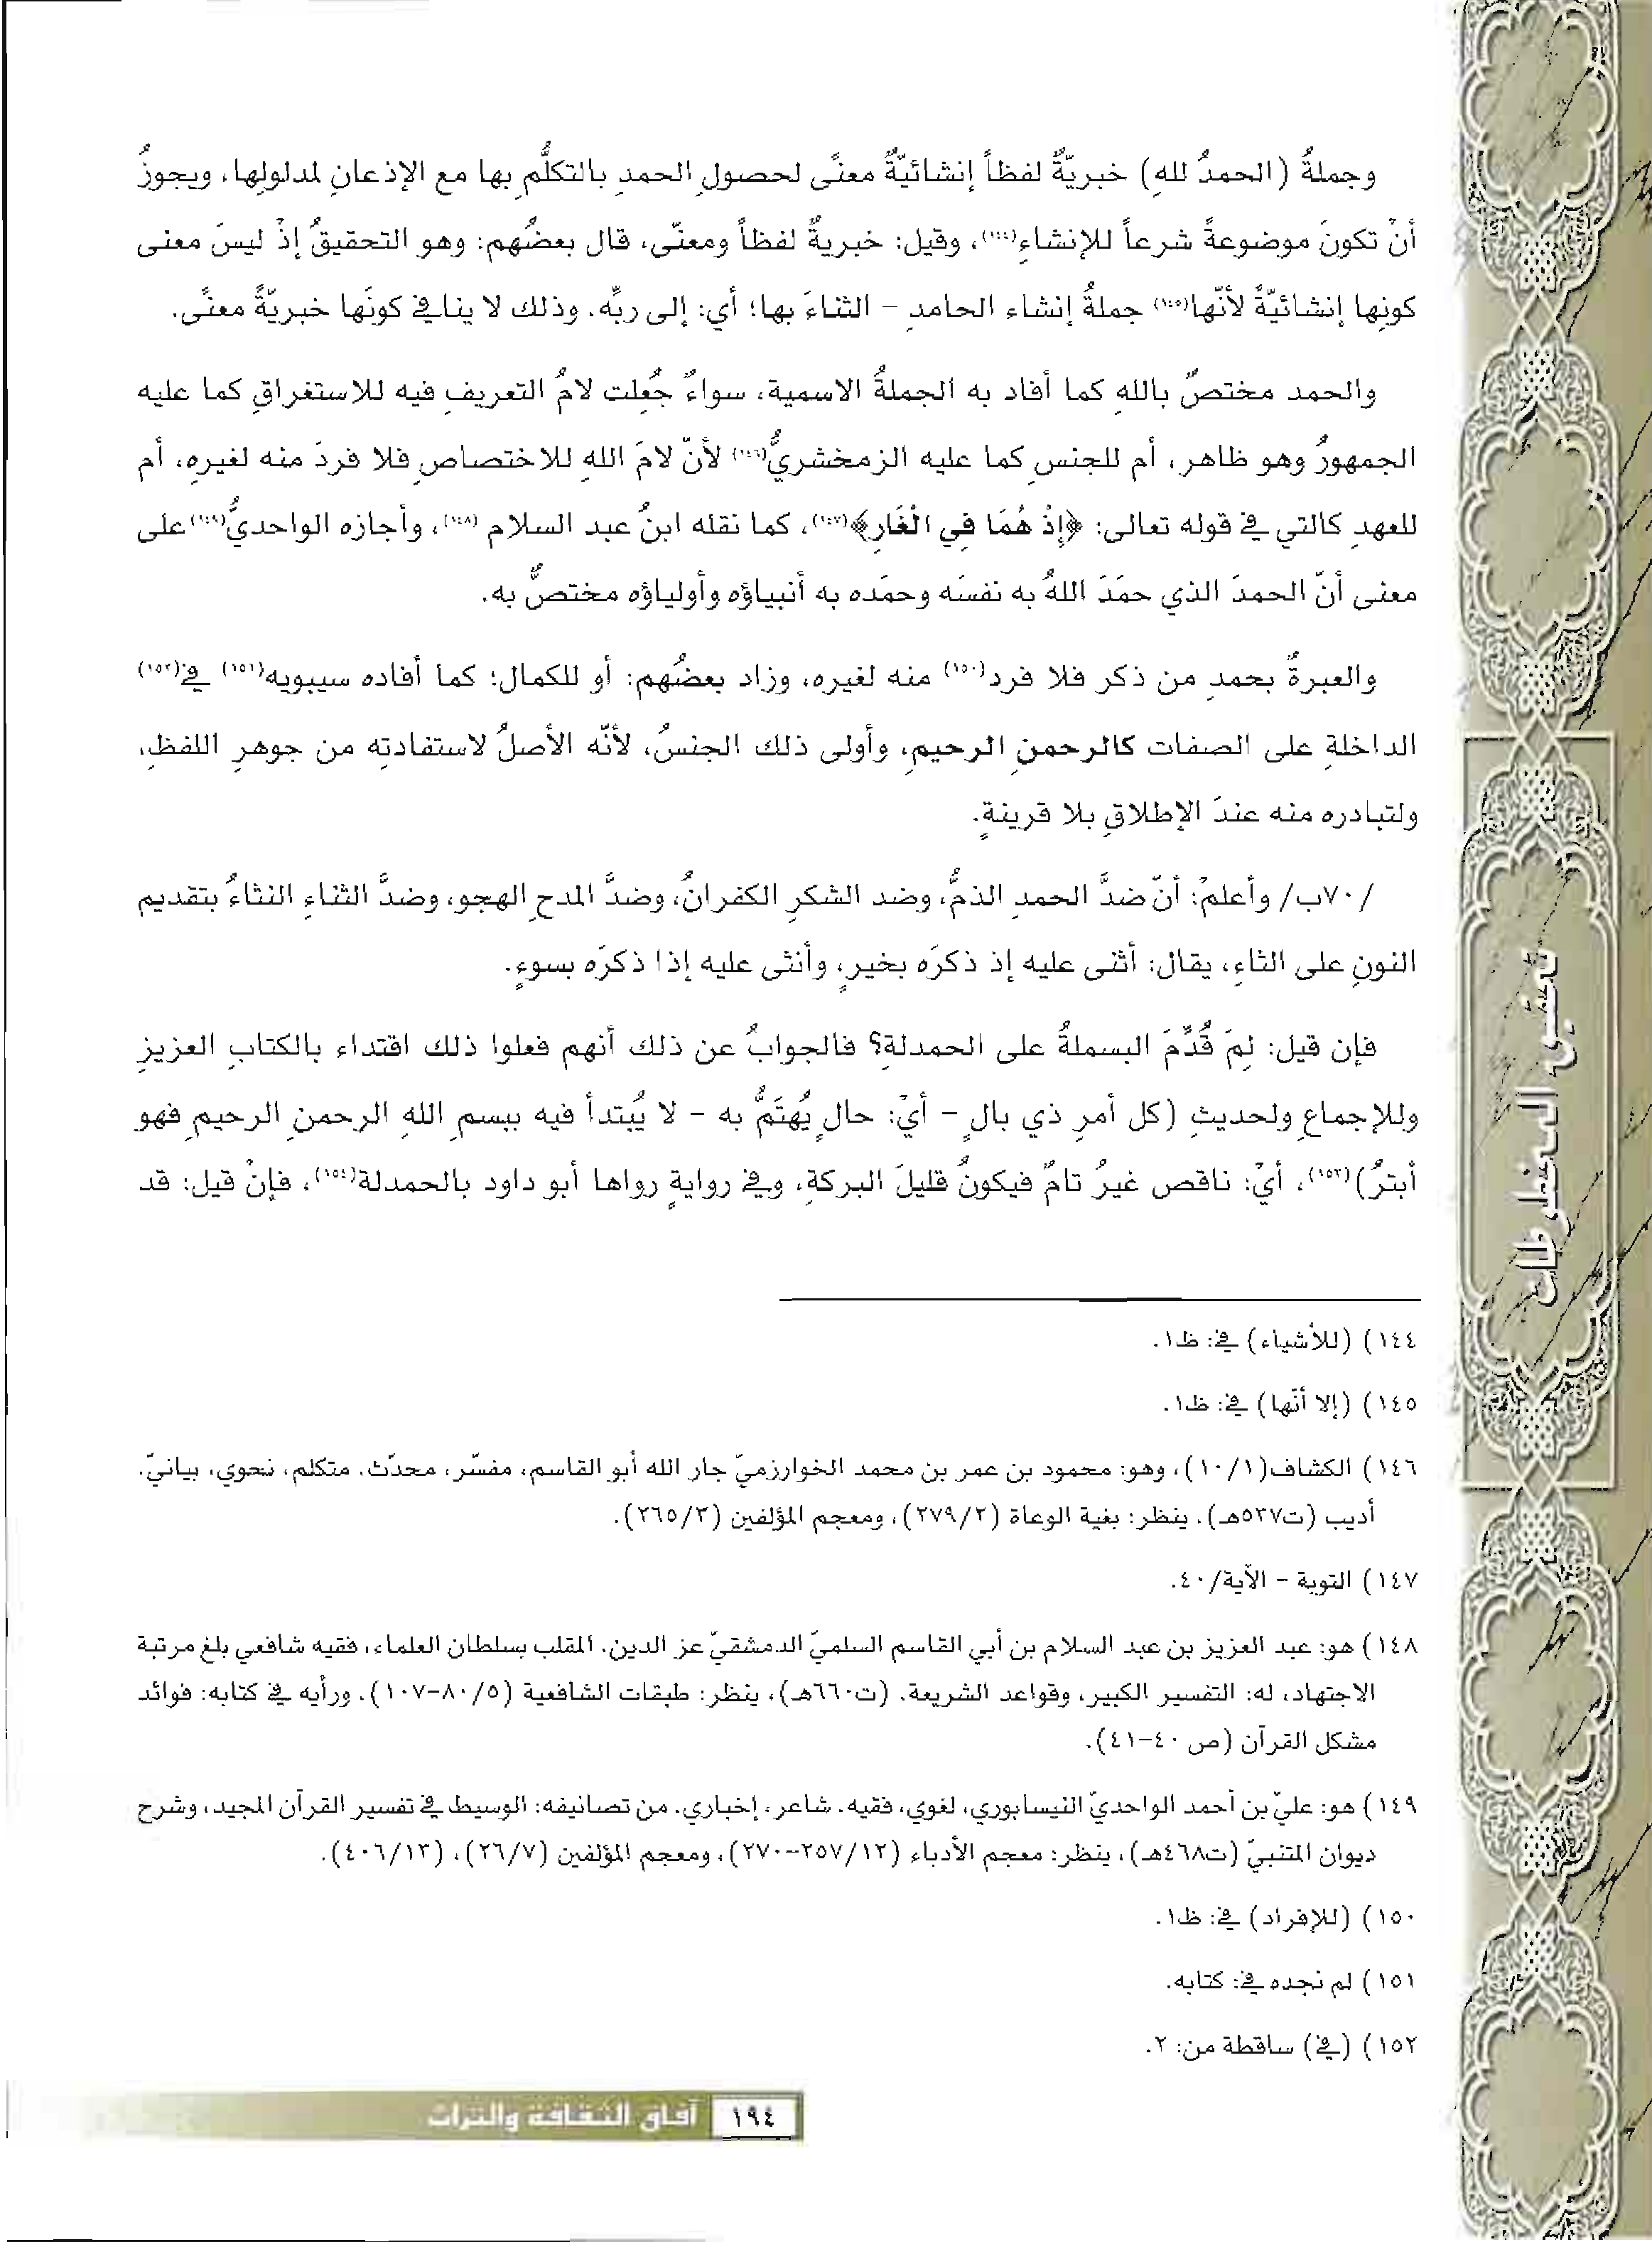 وجملةُ (الحمدُ للهِ) خبريّةٌ لفظاً إنشائيّةٌ معنًى لحصولِ الحمدِ بالتكلُّمِ بها مع الإذعانِ لمدلولِها، ويجوزُ
أنْ تكونَ موضوعةً شرعاً للإنشاءِ(١٤٤)، وقيل: خبريةٌ لفظاً ومعنًى، قال بعضُهم: وهو التحقيقُ إذْ ليسَ معنى
كونِها إنشائيّةً لأنّها(١٤٥) جملةُ إنشاء الحامدِ – الثناءَ بها؛ أي: إلى ربِّه. وذلك لا ينافي كونَها خبريّةً معنًى.
والحمد مختصٌ باللهِ كما أفاد به الجملةُ الاسمية، سواءٌ جُعِلت لامُ التعريفِ فيه للاستغراقِ كما عليه
الجمهورُ وهو ظاهر، أم للجنسِ كما عليه الزمخشريُّ(١٤٦) لأنّ لامَ اللهِ للاختصاصِ فلا فردَ منه لغيرِه، أم
للعهدِ كالتي في قوله تعالى: ﴿إِذْ هُمَا فِي الْغَارِ﴾(١٤٧)، كما نقله ابنُ عبد السلام (١٤٨)، وأجازه الواحديُّ(١٤٩) على
معنى أنّ الحمدَ الذي حمَدَ اللهُ به نفسَه وحمَده به أنبياؤه وأولياؤه مختصٌّ به.
والعبرةُ بحمدِ من ذكر فلا فرد(١٥٠) منه لغيره، وزاد بعضُهم: أو للكمال؛ كما أفاده سيبويه(١٥١) في(١٥٢)
الداخلةِ على الصفات كالرحمنِ الرحيمِ، وأولى ذلك الجنسُ، لأنّه الأصلُ لاستفادتِه من جوهرِ اللفظِ،
ولتبادره منه عندَ الإطلاقِ بلا قرينةٍ.
/٧٠ب/ وأعلمْ: أنّ ضدَّ الحمدِ الذمُّ، وضد الشكرِ الكفرانُ، وضدَّ المدحِ الهجو، وضدَّ الثناءِ النثاءُ بتقديم
النونِ على الثاءِ، يقال: أثنى عليه إذ ذكرَه بخيرٍ، وأنثى عليه إذا ذكرَه بسوءٍ.
فإن قيل: لِمَ قُدِّمَ البسملةُ على الحمدلةِ؟ فالجوابُ عن ذلك أنهم فعلوا ذلك اقتداء بالكتابِ العزيزِ
وللإجماعِ ولحديثِ (كل أمرِ ذي بالٍ – أيْ: حالٍ يُهتَمُّ به – لا يُبتدأ فيه ببسمِ اللهِ الرحمنِ الرحيمِ فهو
أبترُ)(١٥٣)، أيْ: ناقص غيرُ تامٌ فيكونُ قليلَ البركةِ، وفي روايةٍ رواها أبو داود بالحمدلة(١٥٤)، فإنْ قيل: قد
١٤٤) (للأشياء) في: ظ١.
١٤٥) (إلا أنّها) في: ظ١.
١٤٦) الكشاف(١٠/١)، وهو: محمود بن عمر بن محمد الخوارزميّ جار الله أبو القاسم، مفسّر، محدّث، متكلم، نحوي، بيانيّ.
أديب (ت٥٣٧هـ). ينظر: بغية الوعاة (٢٧٩/٢)، ومعجم المؤلفين (٢٦٥/٣).
١٤٧) التوبة – الآية/٤٠.
١٤٨) هو: عبد العزيز بن عبد السلام بن أبي القاسم السلميّ الدمشقيّ عز الدين. المقلب بسلطان العلماء، فقيه شافعي بلغ مرتبة
الاجتهاد، له: التفسير الكبير، وقواعد الشريعة. (ت٦٦٠هـ)، ينظر: طبقات الشافعية (٨٠/٥–١٠٧). ورأيه في كتابه: فوائد
مشكل القرآن (ص ٤٠–٤١).
١٤٩) هو: عليّ بن أحمد الواحديّ النيسابوري، لغوي، فقيه. شاعر، إخباري. من تصانيفه: الوسيط في تفسير القرآن المجيد، وشرح
ديوان المتنبيّ (ت٤٦٨هـ)، ينظر: معجم الأدباء (٢٥٧/١٢–٢٧٠)، ومعجم المؤلفين (٢٦/٧)، (٤٠٦/١٣).
١٥٠) (للإفراد) في: ظ١.
١٥١) لم نجده في: كتابه.
١٥٢) (في) ساقطة من: ٢.
تحقيق المخطوطات
١٩٤ آفاق الثقافة والتراث